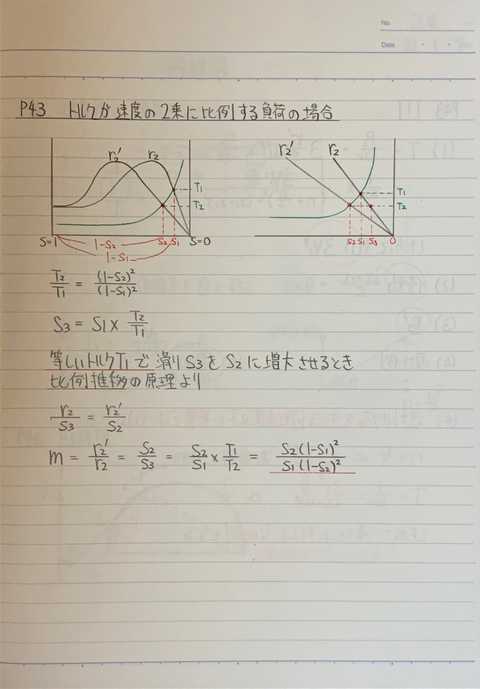 No.
Date
P43 トルクが速度の2乗に比例する負荷の場合
r2' r2 T1 T2
S=1 S2 S1 S=0
1-S2
1-S1
r2' r2 T1 T2
S2 S1 S3 0
T2/T1 = (1-S2)²/(1-S1)²
S3 = S1 × T2/T1
等しいトルクT1で滑りS3をS2に増大させるとき
比例推移の原理より
r2/S3 = r2'/S2
m = r2'/r2 = S2/S3 = S2/S1 × T1/T2 = S2(1-S1)²/S1(1-S2)²